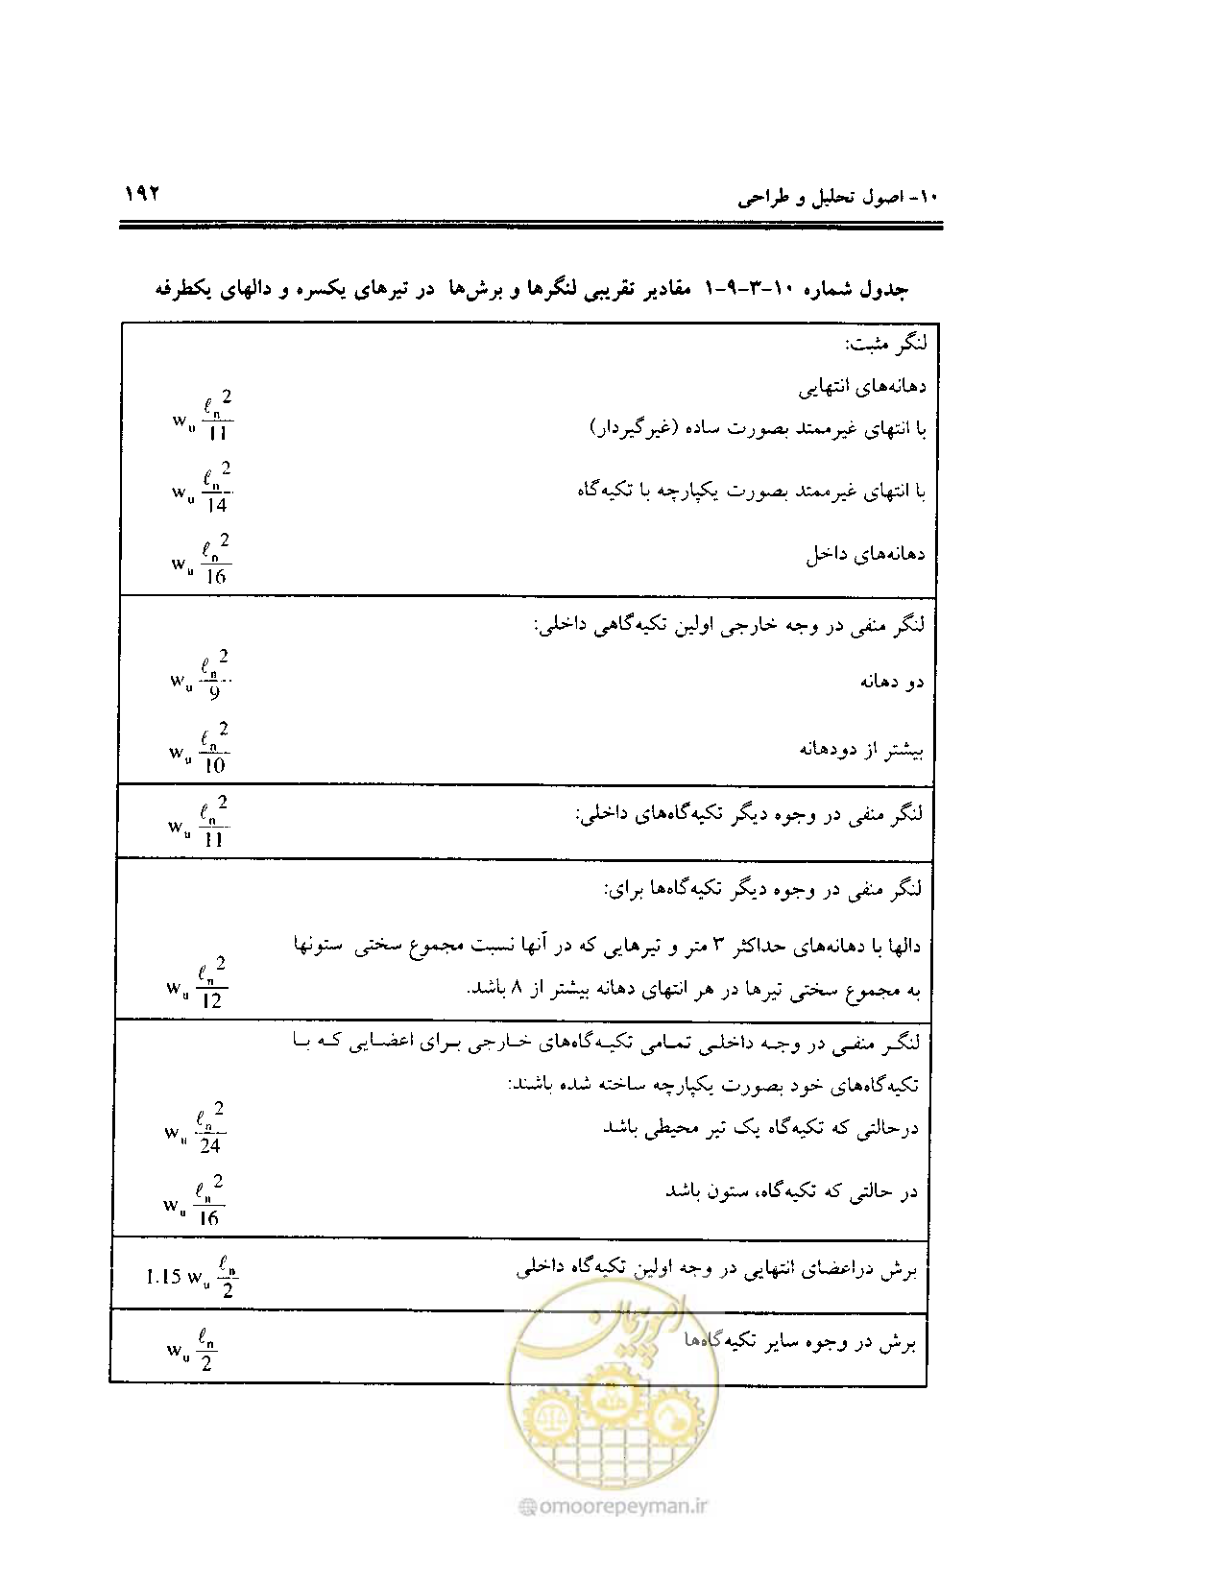 ۱۰- اصول تحلیل و طراحی ۱۹۲
جدول شماره ۱۰-۳-۹-۱ مقادیر تقریبی لنگرها و برش‌ها در تیرهای یکسره و دالهای یکطرفه
لنگر مثبت:
دهانه‌های انتهایی
با انتهای غیرممتد بصورت ساده (غیرگیردار) w_u ℓ_n²/11
با انتهای غیرممتد بصورت یکپارچه با تکیه‌گاه w_u ℓ_n²/14
دهانه‌های داخل w_u ℓ_n²/16
لنگر منفی در وجه خارجی اولین تکیه‌گاهی داخلی:
دو دهانه w_u ℓ_n²/9
بیشتر از دودهانه w_u ℓ_n²/10
لنگر منفی در وجوه دیگر تکیه‌گاه‌های داخلی: w_u ℓ_n²/11
لنگر منفی در وجوه دیگر تکیه‌گاه‌ها برای:
دالها با دهانه‌های حداکثر ۳ متر و تیرهایی که در آنها نسبت مجموع سختی ستونها
به مجموع سختی تیرها در هر انتهای دهانه بیشتر از ۸ باشد. w_u ℓ_n²/12
لنگر منفی در وجه داخلی تمامی تکیه‌گاه‌های خارجی برای اعضایی که با
تکیه‌گاه‌های خود بصورت یکپارچه ساخته شده باشند:
درحالتی که تکیه‌گاه یک تیر محیطی باشد w_u ℓ_n²/24
در حالتی که تکیه‌گاه، ستون باشد w_u ℓ_n²/16
برش دراعضای انتهایی در وجه اولین تکیه‌گاه داخلی 1.15 w_u ℓ_n/2
برش در وجوه سایر تکیه‌گاه‌ها w_u ℓ_n/2
امور پیمان
@omoorepeyman.ir